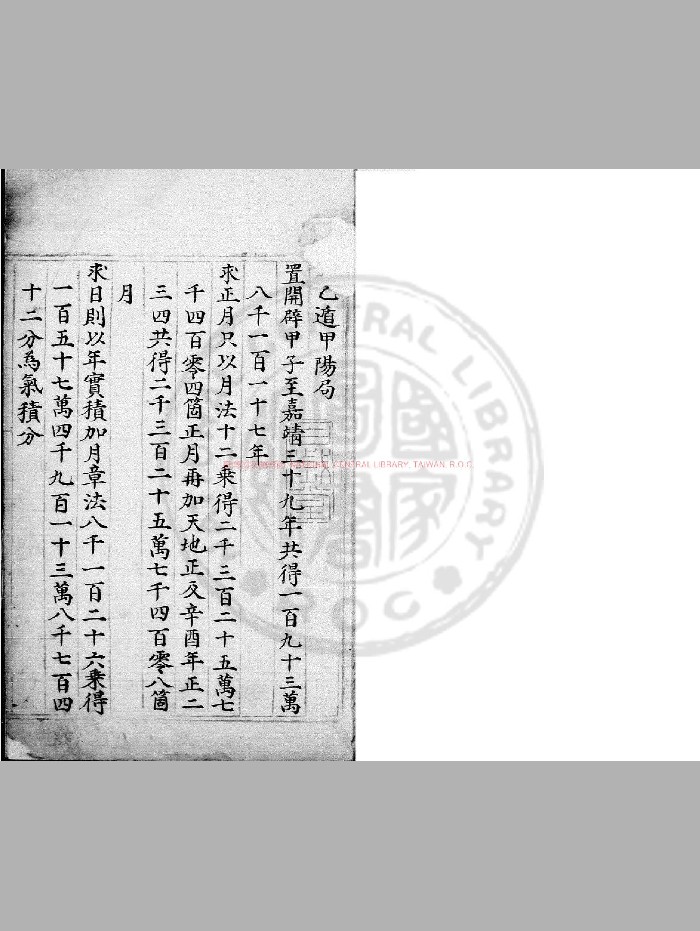 乙遁甲陽局
置開辟甲子至嘉靖三十九年共得一百九十三萬
八千一百一十七年
求正月只以月法十二乘得二千三百二十五萬七
千四百零四箇正月再加天地正及辛酉年正二
三四共得二千三百二十五萬七千四百零八箇
月
求日則以年實積加月章法八千一百二十六乘得
一百五十七萬四千九百一十三萬八千七百四
十二分為氣積分
CENTRAL LIBRARY, TAIWAN, R.O.C.
CENTRAL LIBRARY
ROC